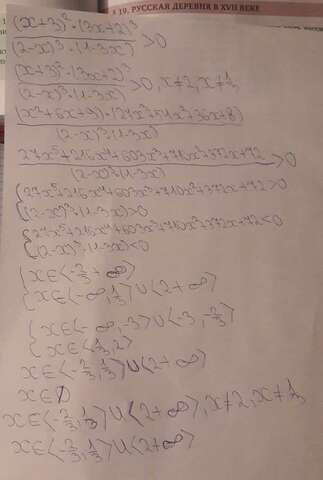 § 19. РУССКАЯ ДЕРЕВНЯ В XVII ВЕКЕ
(x+3)²·(3x+2)³
(2-x)³·(1-3x) >0
(x+3)²·(3x+2)³
(2-x)³·(1-3x) >0, x≠2, x≠1/3
(x²+6x+9)·(27x³+54x²+36x+8)
(2-x)³·(1-3x)
27x⁵+216x⁴+603x³+710x²+372x+72
(2-x)³·(1-3x) >0
{27x⁵+216x⁴+603x³+710x²+372x+72>0
{(2-x)³·(1-3x)>0
{27x⁵+216x⁴+603x³+710x²+372x+72<0
{(2-x)³·(1-3x)<0
{x∈<-2/3+∞>
{x∈<-∞,1/3>∪<2+∞>
{x∈<-∞,-3>∪<-3,-2/3>
{x∈<1/3,2>
x∈<-2/3,1/3>∪<2+∞>
x∈∅
x∈<-2/3,1/3>∪<2+∞>, x≠2, x≠1/3
x∈<-2/3,1/3>∪<2+∞>